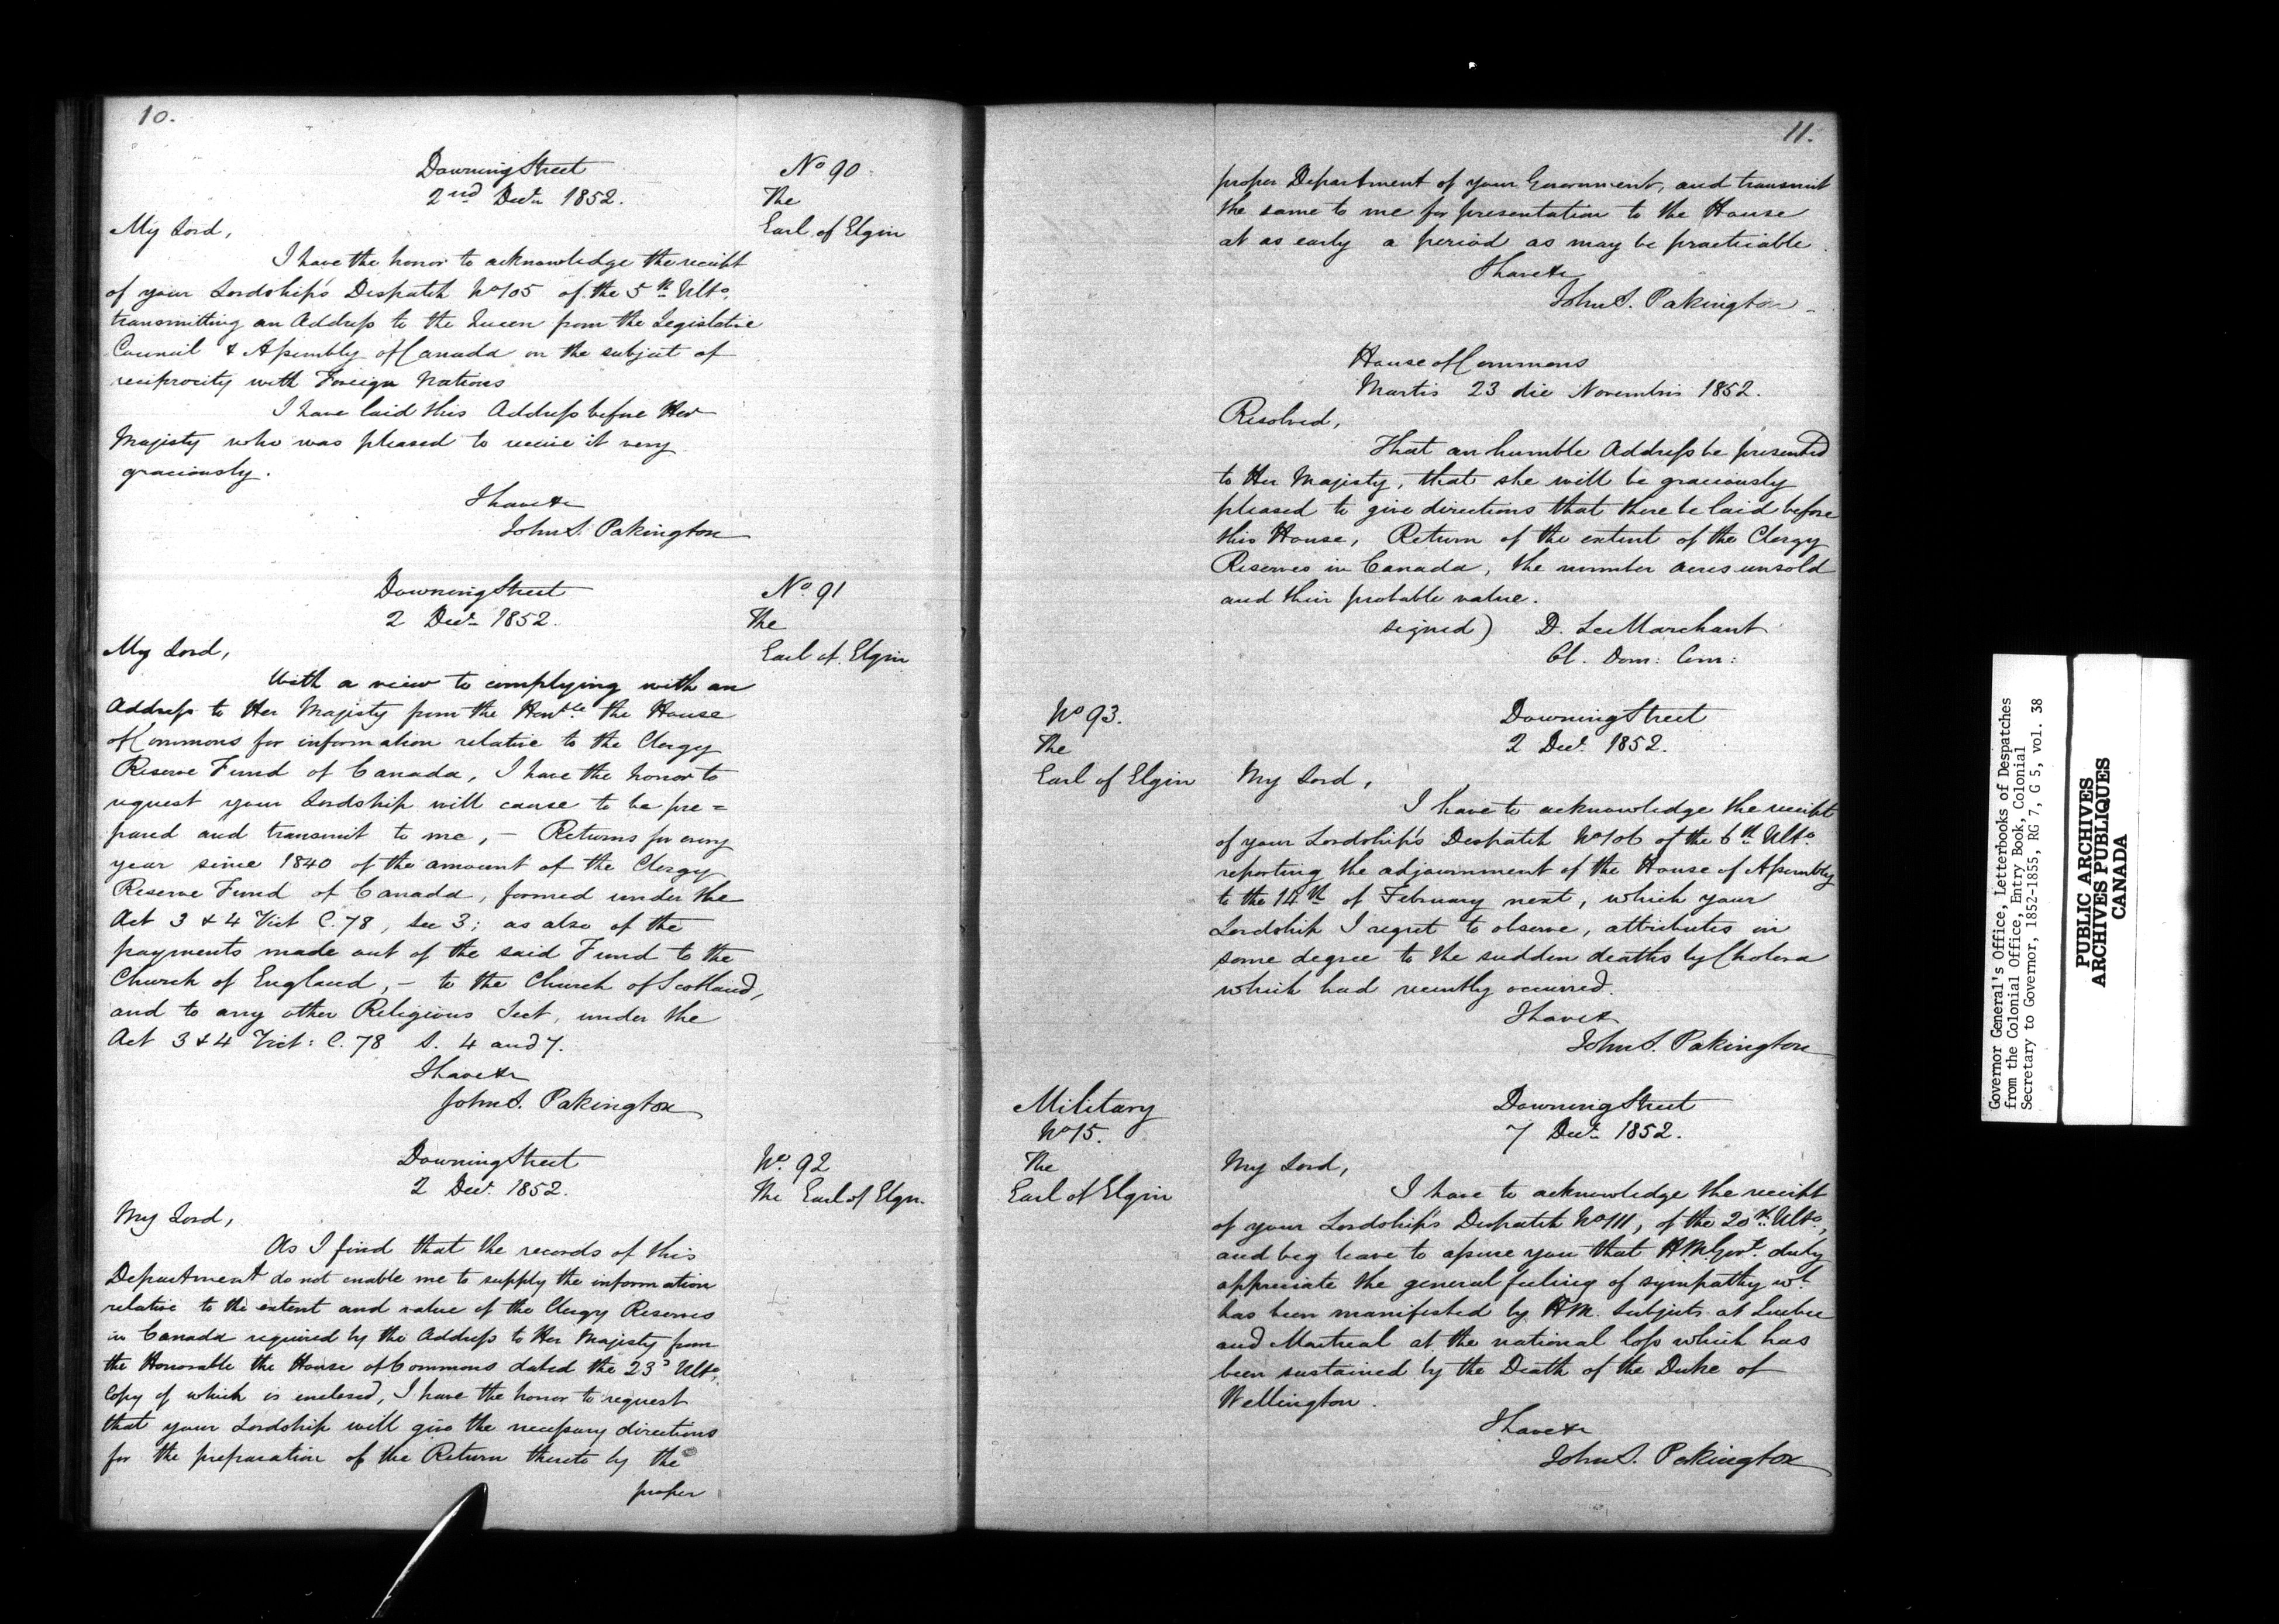 10.
Downing Street
2nd Decr 1852.
No 90
The
Earl of Elgin
My Lord,
I have the honor to acknowledge the receipt
of your Lordship's Despatch No 105 of the 5th Ulto,
transmitting an Address to the Queen from the Legislative
Council & Assembly of Canada on the subject of
reciprocity with Foreign Nations
I have laid this Address before Her
Majesty who was pleased to receive it very
graciously.
I have &c
John S. Pakington
Downing Street
2 Decr 1852.
No 91
The
Earl of Elgin
My Lord,
With a view to complying with an
Address to Her Majesty from the Honble the House
of Commons for information relative to the Clergy
Reserve Fund of Canada, I have the honor to
request your Lordship will cause to be pre=
pared and transmit to me, – Returns for every
year since 1840 of the amount of the Clergy
Reserve Fund of Canada, formed under the
Act 3 & 4 Vict C. 78, Sec 3; as also of the
payments made out of the said Fund to the
Church of England, – to the Church of Scotland,
and to any other Religious Sect, under the
Act 3 & 4 Vict: C. 78 S. 4 and 7.
I have &c
John S. Pakington
Downing Street
2 Decr 1852.
No 92
The Earl of Elgin.
My Lord,
As I find that the records of this
Department do not enable me to supply the information
relative to the extent and value of the Clergy Reserves
in Canada required by the Address to Her Majesty from
the Honorable the House of Commons dated the 23d Ulto,
Copy of which is enclosed, I have the honor to request
that your Lordship will give the necessary directions
for the preparation of the Return thereto by the
proper
11.
proper Department of your Government, and transmit
the same to me for presentation to the House
at as early a period as may be practicable.
I have &c
John S. Pakington
House of Commons
Martis 23 die Novembris 1852.
Resolved,
That an humble Address be presented
to Her Majesty, that she will be graciously
pleased to give directions that there be laid before
this House, Return of the extent of the Clergy
Reserves in Canada, the number acres unsold
and their probable value.
signed) D. Le Marchant
Cl. Dom: Com:
No 93.
The
Earl of Elgin
Downing Street
2 Decr 1852.
My Lord,
I have to acknowledge the receipt
of your Lordship's Despatch No 106 of the 6th Ulto
reporting the adjournment of the House of Assembly
to the 14th of February next, which your
Lordship I regret to observe, attributes in
some degree to the sudden deaths by Cholera
which had recently occurred.
I have &
John S. Pakington
Military
No 15.
The
Earl of Elgin
Downing Street
7 Decr 1852.
My Lord,
I have to acknowledge the receipt
of your Lordship's Despatch No 111, of the 20th Ulto,
and beg leave to assure you that H M Govt. duly
appreciate the general feeling of sympathy wh
has been manifested by H M. Subjects at Quebec
and Montreal at the national loss which has
been sustained by the Death of the Duke of
Wellington.
I have &c
John S. Pakington
Governor General's Office, Letterbooks of Despatches
from the Colonial Office, Entry Book, Colonial
Secretary to Governor, 1852-1855, RG 7, G 5, vol. 38
PUBLIC ARCHIVES
ARCHIVES PUBLIQUES
CANADA